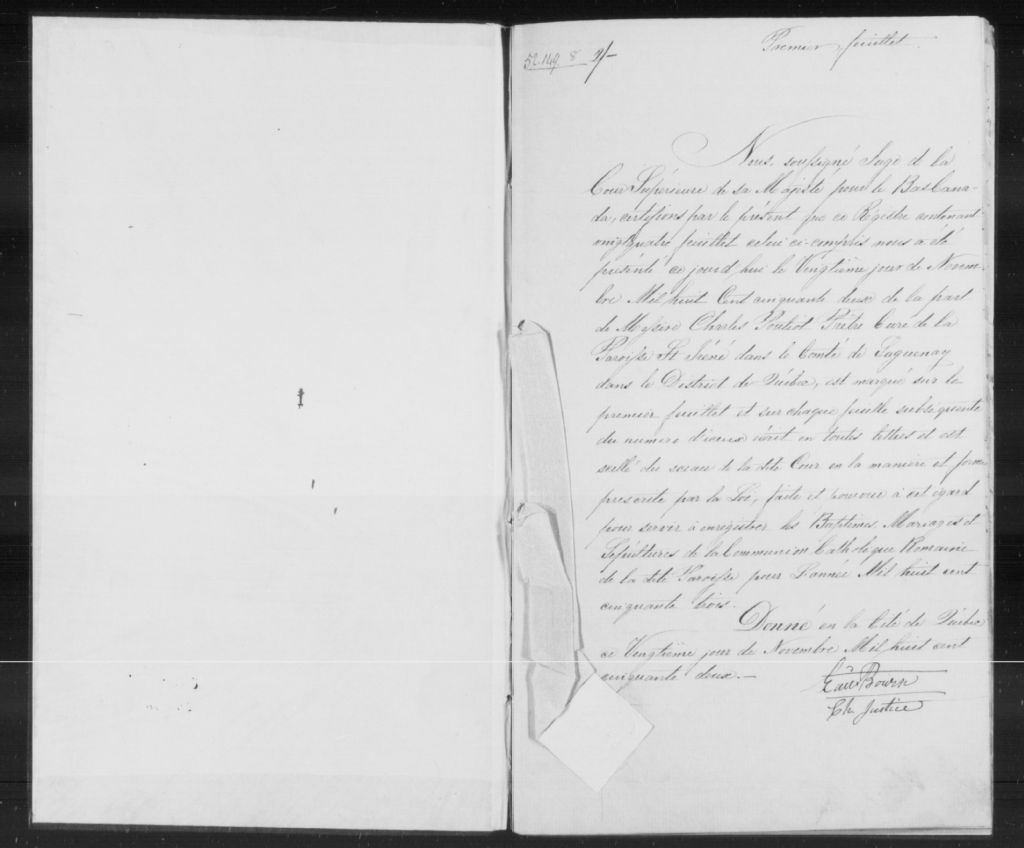 Premier feuillet.
52.149 8 2/-
Nous, soussigné Juge d la
Cour Supérieure de sa Majesté pour le Bas Cana-
da, certifions par le présent que ce Régistre contenant
vingtquatre feuillet celui ci-compris nous a été
présenté ce jourd'hui le Vingtième jour de Novem-
bre Mil huit Cent cinquante deux de la part
de Messire Charles Pouliot Prêtre Curé de la
Paroisse St Iréné dans le Comté de Saguenay
dans le District de Québec, est marqué sur le
premier feuillet et sur chaque feuille subséquente
du numero d'iceux écrit en toutes lettres et est
scellé du sceau de la dite Cour en la manière et forme
prescrite par la Loi, faite et pourvue à cet égard
pour servir à enregistrer les Baptêmes, Mariages et
Sépultures de la Communion Catholique Romaine
de la dite Paroisse pour L'année Mil huit cent
cinquante trois.
Donné en la Cité de Québec
ce Vingtième jour de Novembre Mil huit cent
cinquante deux.—
Edw Bowen
Ch Justice